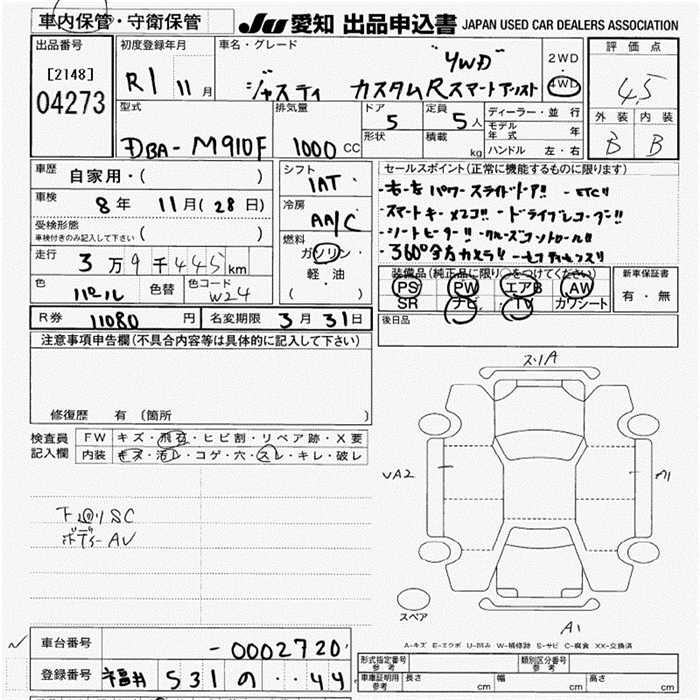 車内保管・守衛保管
JU 愛知 出品申込書 JAPAN USED CAR DEALERS ASSOCIATION
出品番号
[2148]
04273
初度登録年月
R1 11月
車名・グレード
"4WD"
ジャスティ カスタムRスマートアシスト
2WD
4WD
評価点
4.5
外装 内装
B B
型式
DBA-M910F
排気量
1000 CC
ドア
5
形状
定員
5人
積載
kg
ディーラー・並行
モデル年式 年
ハンドル 左・右
車歴
自家用・( )
車検
8年 11月(28日)
受検形態
車検付きのみ記入して下さい ( )
走行
3万9千445km
色
パール
色替
色コード
W24
シフト
1AT
冷房
AA/C
燃料
ガソリン・
軽油
( )
セールスポイント(正常に機能するものに限ります)
・右左パワースライドドア!! ・ETC!!
・スマートキー×2コ!! ・ドライブレコーダー!!
・シートヒーター!! ・クルーズコントロール!!
・360°全方カメラ!!
装備品(純正品に限り○をつけてください)
PS PW エアB AW
SR ナビ TV カワシート
新車保証書
有・無
後日品
R券 11080円
名変期限 3月31日
注意事項申告欄(不具合内容等は具体的に記入して下さい)
修復歴 有(箇所 )
検査員記入欄
FW キズ・飛石・ヒビ割・リペア跡・X要
内装 キズ・汚レ・コゲ・穴・スレ・キレ・破レ
下回りSC
ボデーAU
ス.1A
A2
スペア
A1
A-キズ E-エクボ U-凹み W-補修跡 S-サビ C-腐食 XX-交換済
車台番号
-0002720
登録番号
福井 531 の ・・44
型式指定番号 参考
類別区分番号 参考
車庫証明用 参考
長さ cm
幅 cm
高さ cm